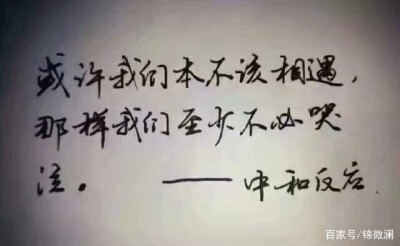 或许我们本不该相遇，
那样我们至少不必哭
泣。——中和反应
百家号/锦微澜